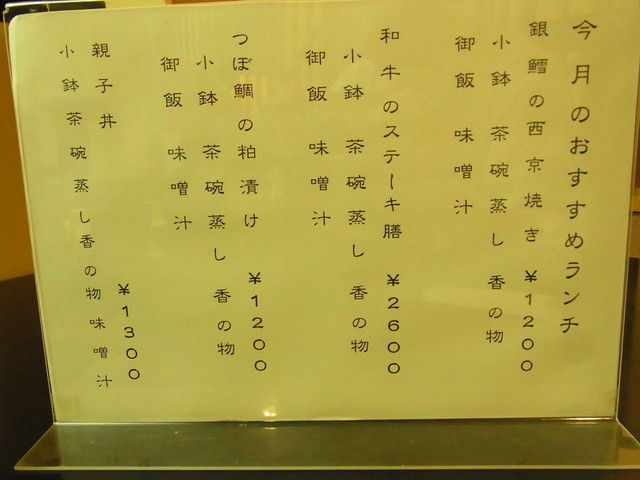 今月のおすすめランチ
銀鱈の西京焼き ¥1200
小鉢 茶碗蒸し 香の物
御飯 味噌汁
和牛のステーキ膳 ¥2600
小鉢 茶碗蒸し 香の物
御飯 味噌汁
つぼ鯛の粕漬け ¥1200
小鉢 茶碗蒸し 香の物
御飯 味噌汁
親子丼 ¥1300
小鉢茶碗蒸し香の物味噌汁